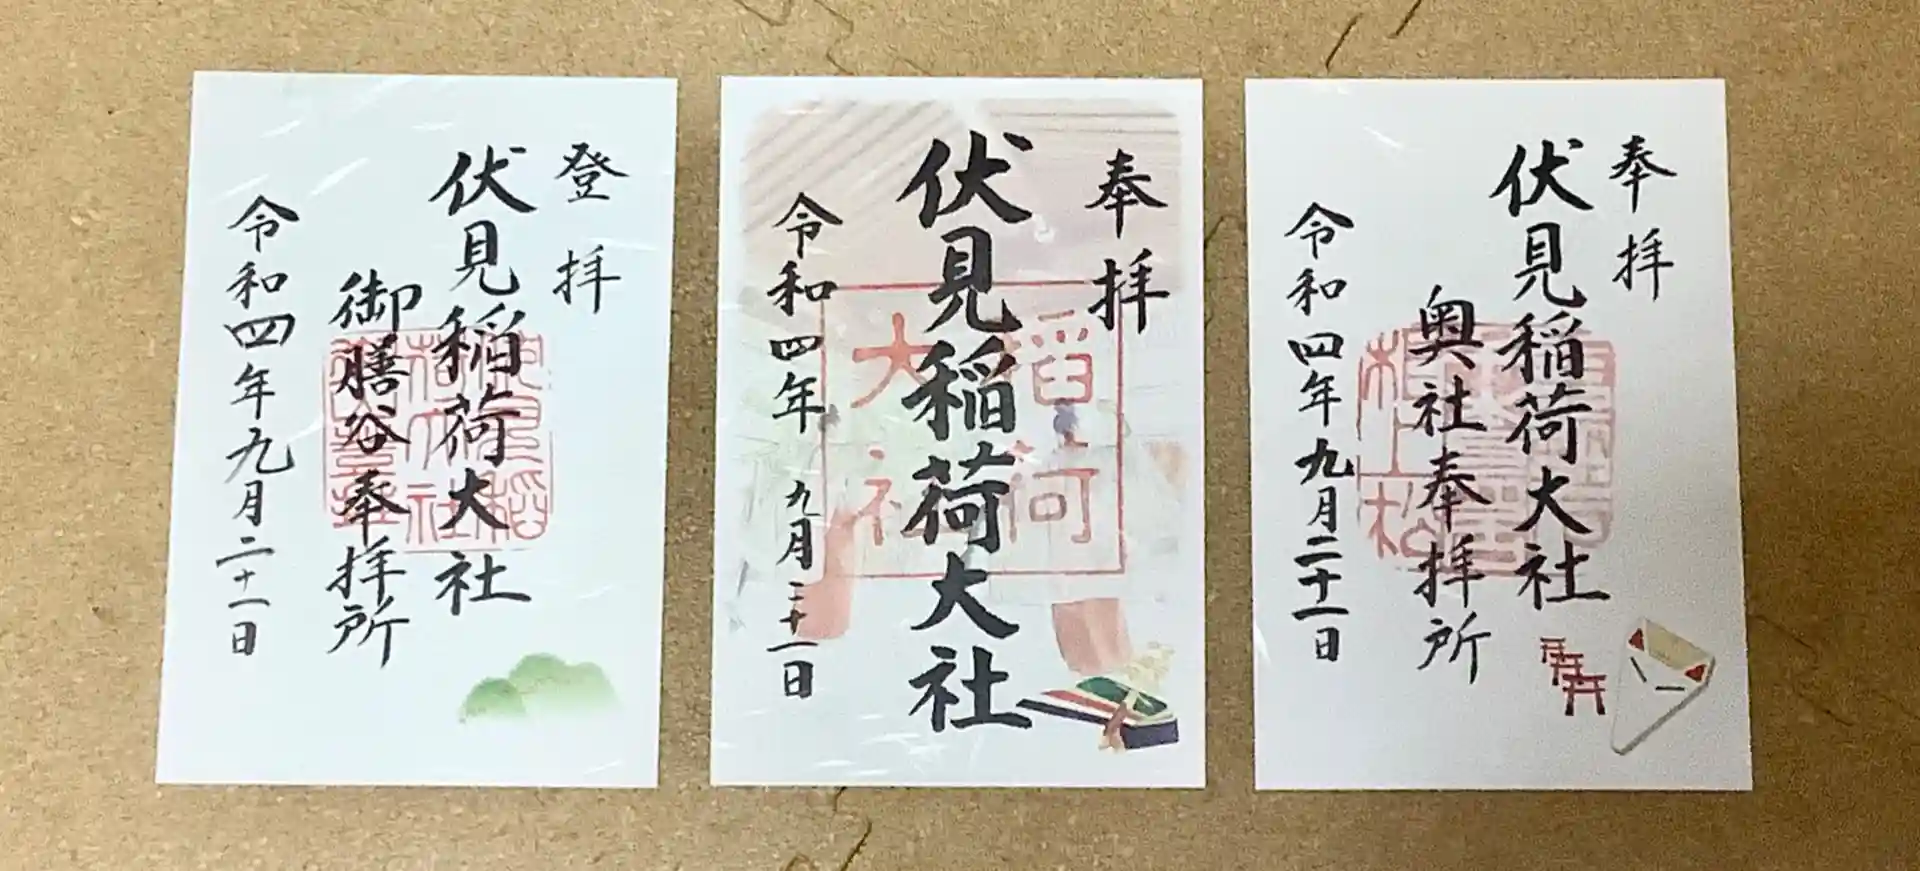 登拝
伏見稲荷大社
御膳谷奉拝所
令和四年九月二十一日
奉拝
伏見稲荷大社
稲荷
大社
令和四年九月二十一日
奉拝
伏見稲荷大社
奥社奉拝所
令和四年九月二十一日